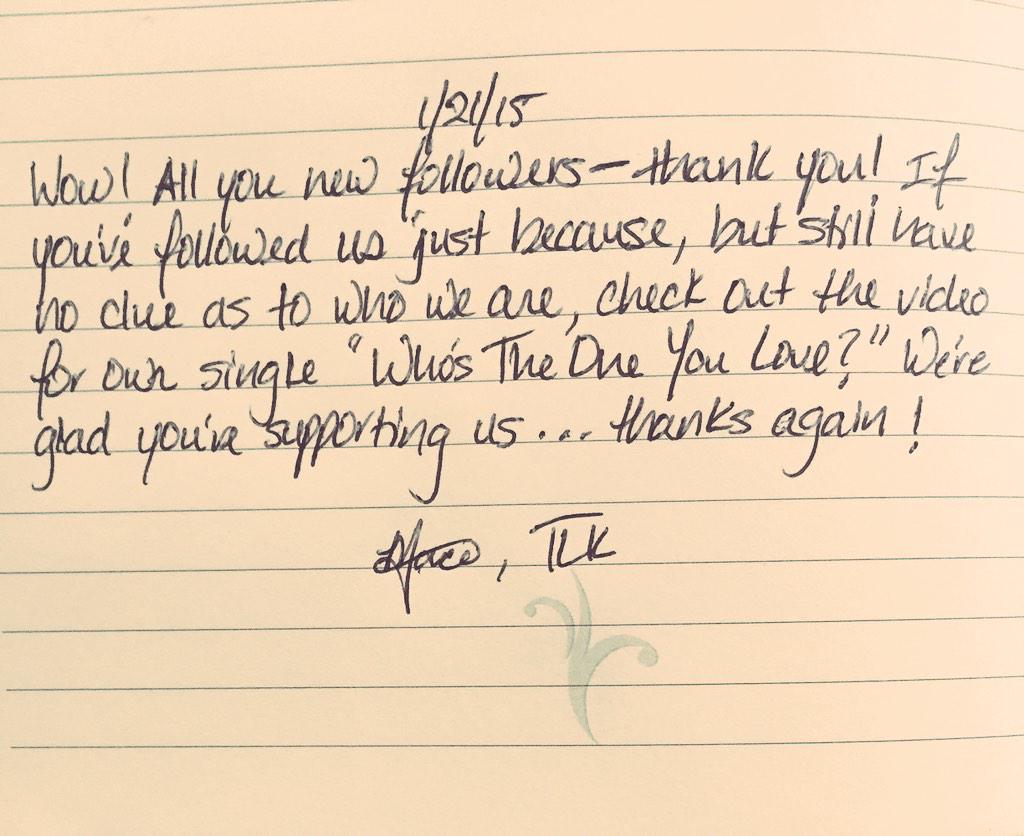 1/21/15
Wow! All you new followers — thank you! If
you've followed us just because, but still have
no clue as to who we are, check out the video
for our single "Who's The One You Love?" We're
glad you're supporting us... thanks again!
, TLK